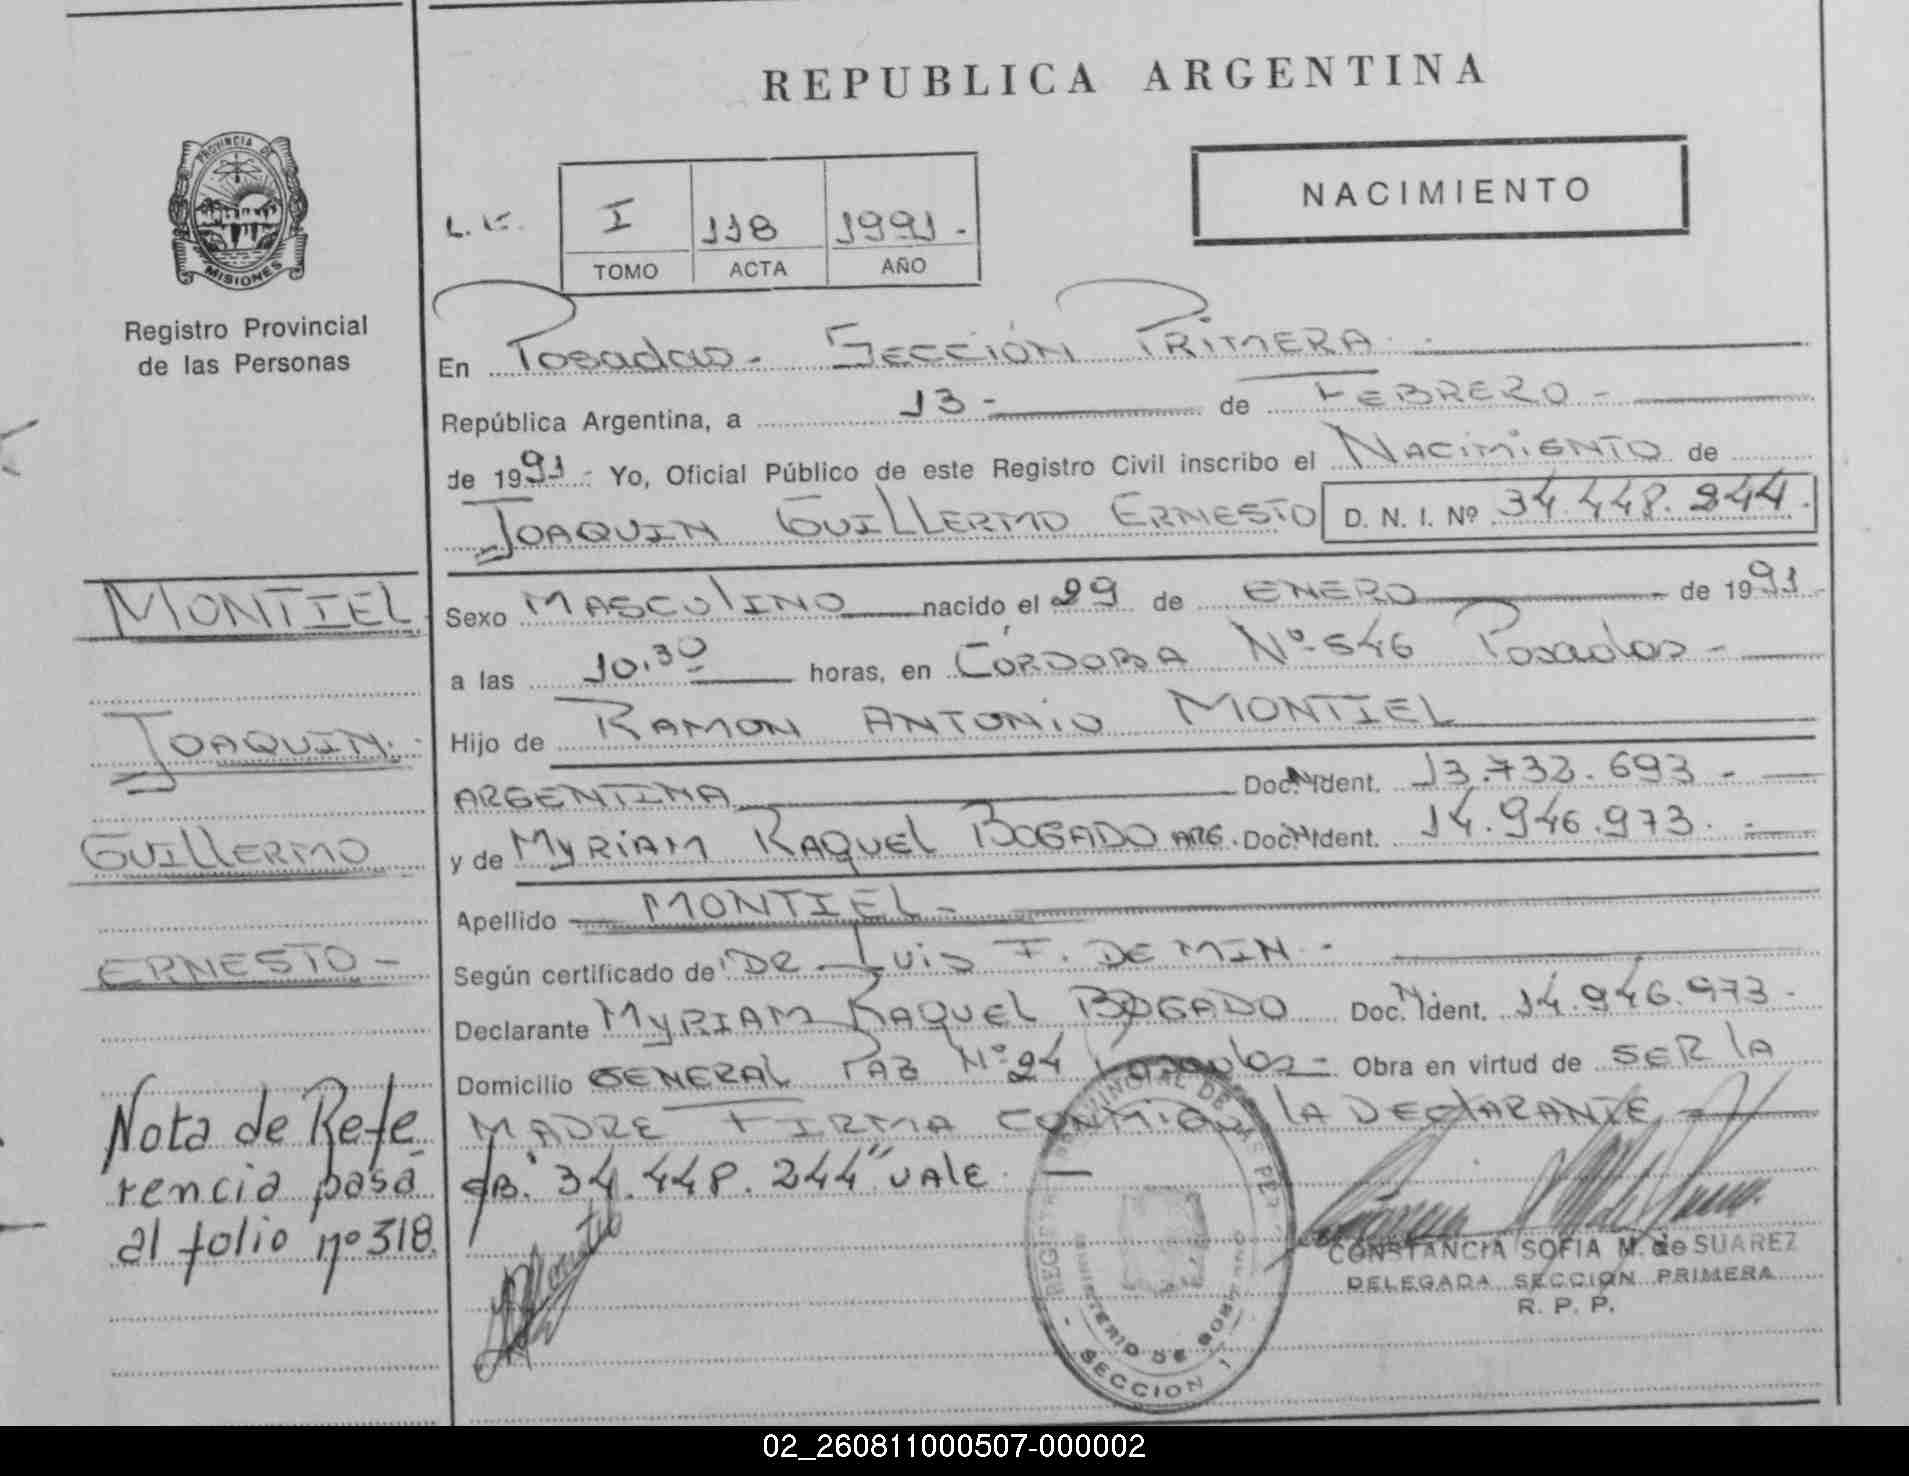 REPUBLICA ARGENTINA
PROVINCIA DE
MISIONES
Registro Provincial
de las Personas
NACIMIENTO
L.E.
I 118 1991.-
TOMO ACTA AÑO
En Posadas - SECCIÓN PRIMERA.-
República Argentina, a 13 - de FEBRERO -
de 1991 - Yo, Oficial Público de este Registro Civil inscribo el NACIMIENTO de
JOAQUIN GUILLERMO ERNESTO D. N. I. Nº 34.448.244.
MONTIEL
JOAQUIN.
GUILLERMO
ERNESTO -
Sexo MASCULINO nacido el 29 de ENERO de 1991.-
a las 10.30 horas, en CÓRDOBA Nº 546 Posadas -
Hijo de RAMON ANTONIO MONTIEL
ARGENTINA Doc. N Ident. 13.732.693 -
y de MYRIAM RAQUEL BOGADO ARG. Doc. N Ident. 14.946.973. -
Apellido MONTIEL -
Según certificado de DR LUIS F. DE MIN.-
Declarante MYRIAM RAQUEL BOGADO Doc. N Ident. 14.946.973 -
Domicilio GENERAL PAZ Nº 24 Posadas - Obra en virtud de SER LA
MADRE FIRMA CONMIGO LA DECLARANTE
"34.448.244" VALE.
Nota de Refe
rencia pasa
al folio nº 318.
CONSTANCIA SOFIA M. de SUAREZ
DELEGADA SECCION PRIMERA
R. P. P.
MINISTERIO DE GOBIERNO
SECCION 1
02_260811000507-000002